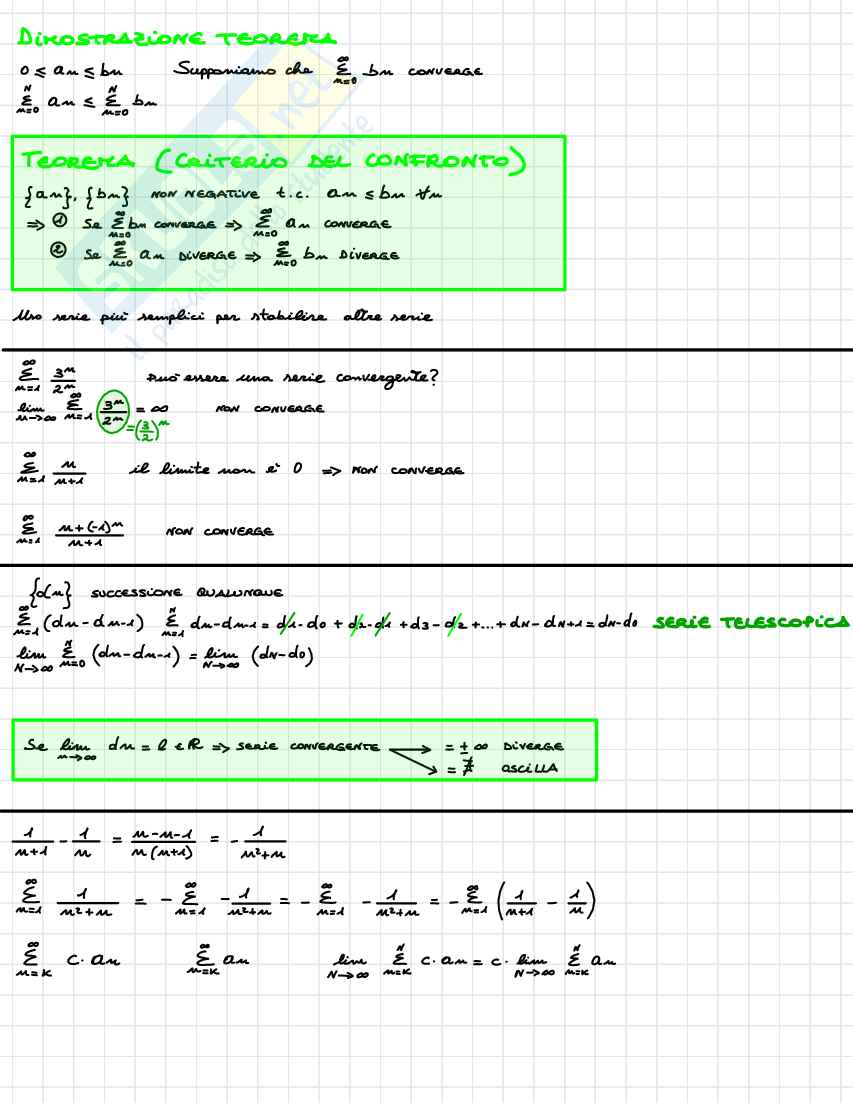 DIMOSTRAZIONE TEOREMA
0 ≤ an ≤ bn Supponiamo che ∞ Σ n=0 bn CONVERGE
N Σ n=0 an ≤ N Σ n=0 bn
TEOREMA (CRITERIO DEL CONFRONTO)
{an}, {bn} NON NEGATIVE t.c. an ≤ bn ∀n
⇒ ① Se ∞ Σ n=0 bn CONVERGE ⇒ ∞ Σ n=0 an CONVERGE
② Se ∞ Σ n=0 an DIVERGE ⇒ ∞ Σ n=0 bn DIVERGE
Uso serie più semplici per stabilire altre serie
∞ Σ n=1 3^n/2^n Può essere una serie convergente?
lim n→∞ ∞ Σ n=1 3^n/2^n = ∞ NON CONVERGE
=(3/2)^n
∞ Σ n=1 n/(n+1) il limite non è 0 ⇒ NON CONVERGE
∞ Σ n=1 (n+(-1)^n)/(n+1) NON CONVERGE
{dn} SUCCESSIONE QUALUNQUE
∞ Σ n=1 (dn-dn-1) N Σ n=1 dn-dn-1 = d1-d0 + d2-d1 + d3-d2 +...+ dN-dN+1 = dN-d0 SERIE TELESCOPICA
lim N→∞ N Σ n=0 (dn-dn-1) = lim N→∞ (dN-d0)
Se lim n→∞ dn = l ∈ ℝ ⇒ SERIE CONVERGENTE → = ± ∞ DIVERGE
→ = ∄ OSCILLA
1/(n+1) - 1/n = (n-n-1)/(n(n+1)) = - 1/(n²+n)
∞ Σ n=1 1/(n²+n) = - ∞ Σ n=1 -1/(n²+n) = - ∞ Σ n=1 - 1/(n²+n) = - ∞ Σ n=1 (1/(n+1) - 1/n)
∞ Σ n=k c·an ∞ Σ n=k an lim N→∞ N Σ n=k c·an = c· lim N→∞ N Σ n=k an